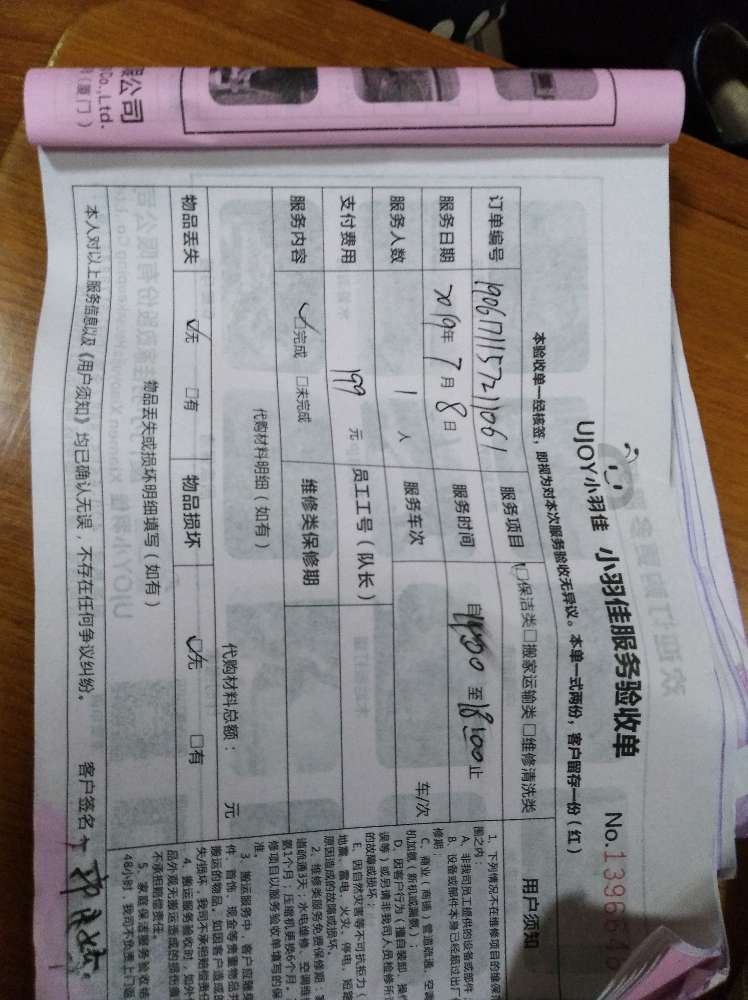 限公司
Co.,Ltd.
（厦门）
UJOY小羽佳 小羽佳服务验收单 No.139664
本验收单一经核签，即视为对本次服务验收无异议。本单一式两份，客户留存一份（红）
订单编号 190617115721061 服务项目 □保洁类□搬家运输类□维修清洗类
服务日期 2019年7月8日 服务时间 自14:00 至18:00止
服务人数 1人 服务车次 车/次
支付费用 199元 员工工号（队长）
服务内容 ☑完成 □未完成 维修类保修期
代购材料明细（如有） 代购材料总额： 元
物品丢失 ☑无 □有 物品损坏 ☑无 □有
物品丢失或损坏明细填写（如有）
本人对以上服务信息以及《用户须知》均已确认无误，不存在任何争议纠纷。 客户签名
用户须知
1、下列情况不在维修项目的维保
围之内：
A、非我司员工提供的设备或部件
B、设备或部件本身已经超过出厂
修期；
C、商业（商铺）管道疏通、空调
机加氨（新机或漏氨）；
D、因客户行为（擅自装卸、操
误等）或另请非我司人员检修所
的故障或损坏；
E、因自然灾害等不可抗拒力（
地震、雷电、火灾、停电、短路
原因造成的故障或损坏。
2、维修类服务免费保修期：
道疏通3天；水电维修、空调维
氨1个月；压缩机更换6个月。
修项目以服务验收单填写的保
准。
3、搬运服务中，客户应随身
件、首饰、现金等贵重物品
搬运的物品，如因客户造成的
失/损坏，我司不承担赔偿责任
4、搬运服务验收时，如外
品外观无搬运造成的损伤痕
不承担赔偿责任。
5、家庭保洁服务验收
48小时，我司不负责上门